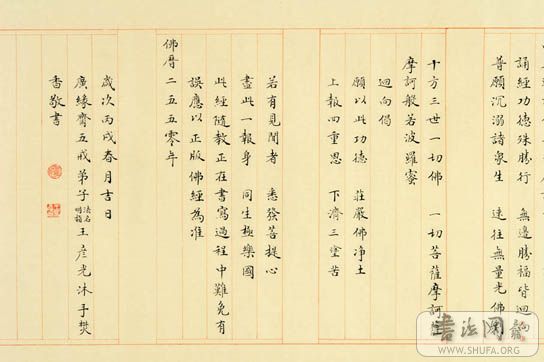 誦經功德殊勝行 無邊勝福皆迴向
普願沉溺諸眾生 速往無量光佛剎
十方三世一切佛 一切菩薩摩訶薩
摩訶般若波羅蜜
迴向偈
願以此功德 莊嚴佛净土
上報四重恩 下濟三塗苦
若有見聞者 悉發菩提心
盡此一報身 同生極樂國
此經隨教正在書寫過程中難免有
誤應以正版佛經為准
佛曆二五五零年
歲次丙戌春月吉日
廣緣齊五戒弟子法名明王彥光沐手焚
香敬書
書法网
WWW.SHUFA.ORG